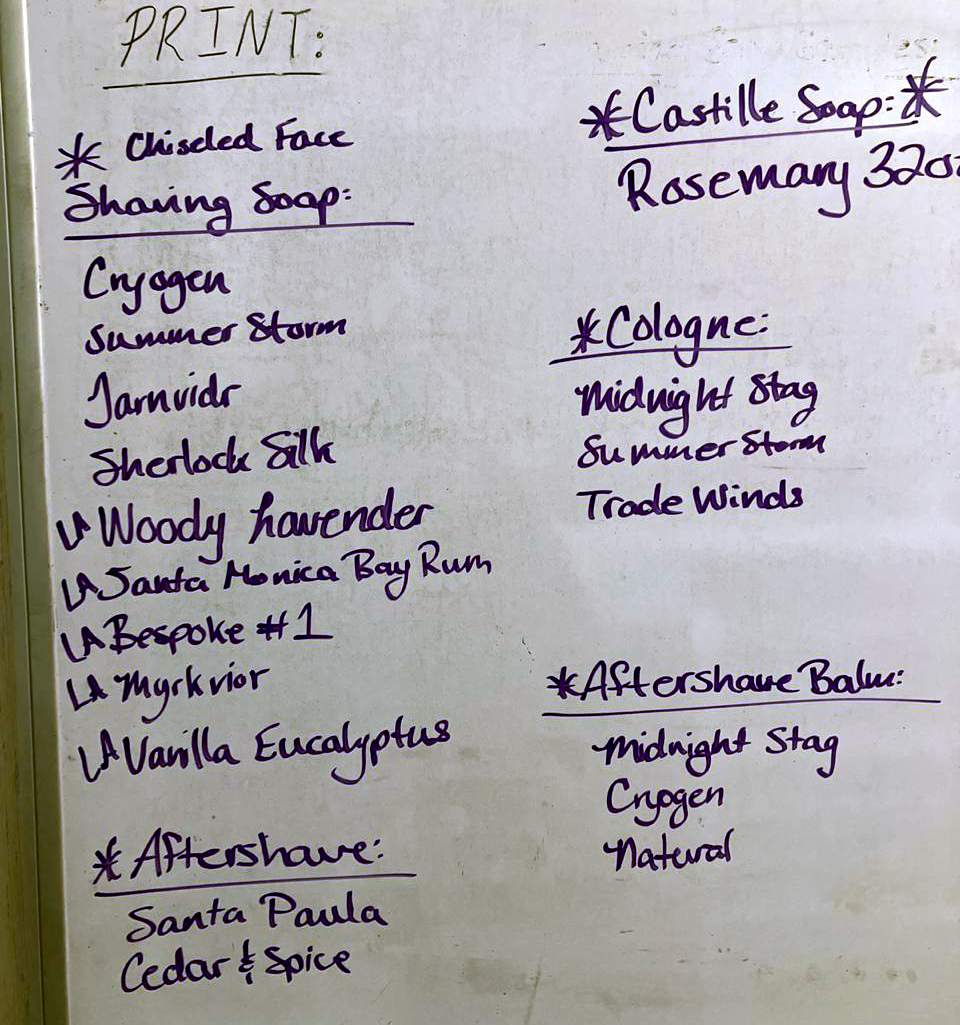 PRINT:
* Chiseled Face
Shaving Soap:
Cryogen
Summer Storm
Jarnvidr
Sherlock Silk
LA Woody Lavender
LA Santa Monica Bay Rum
LA Bespoke #1
LA Myrkvior
LA Vanilla Eucalyptus
* Aftershave:
Santa Paula
Cedar & Spice
*Castille Soap:*
Rosemary 32oz
*Cologne:
Midnight Stag
Summer Storm
Trade Winds
*Aftershave Balm:
Midnight Stag
Cryogen
Natural